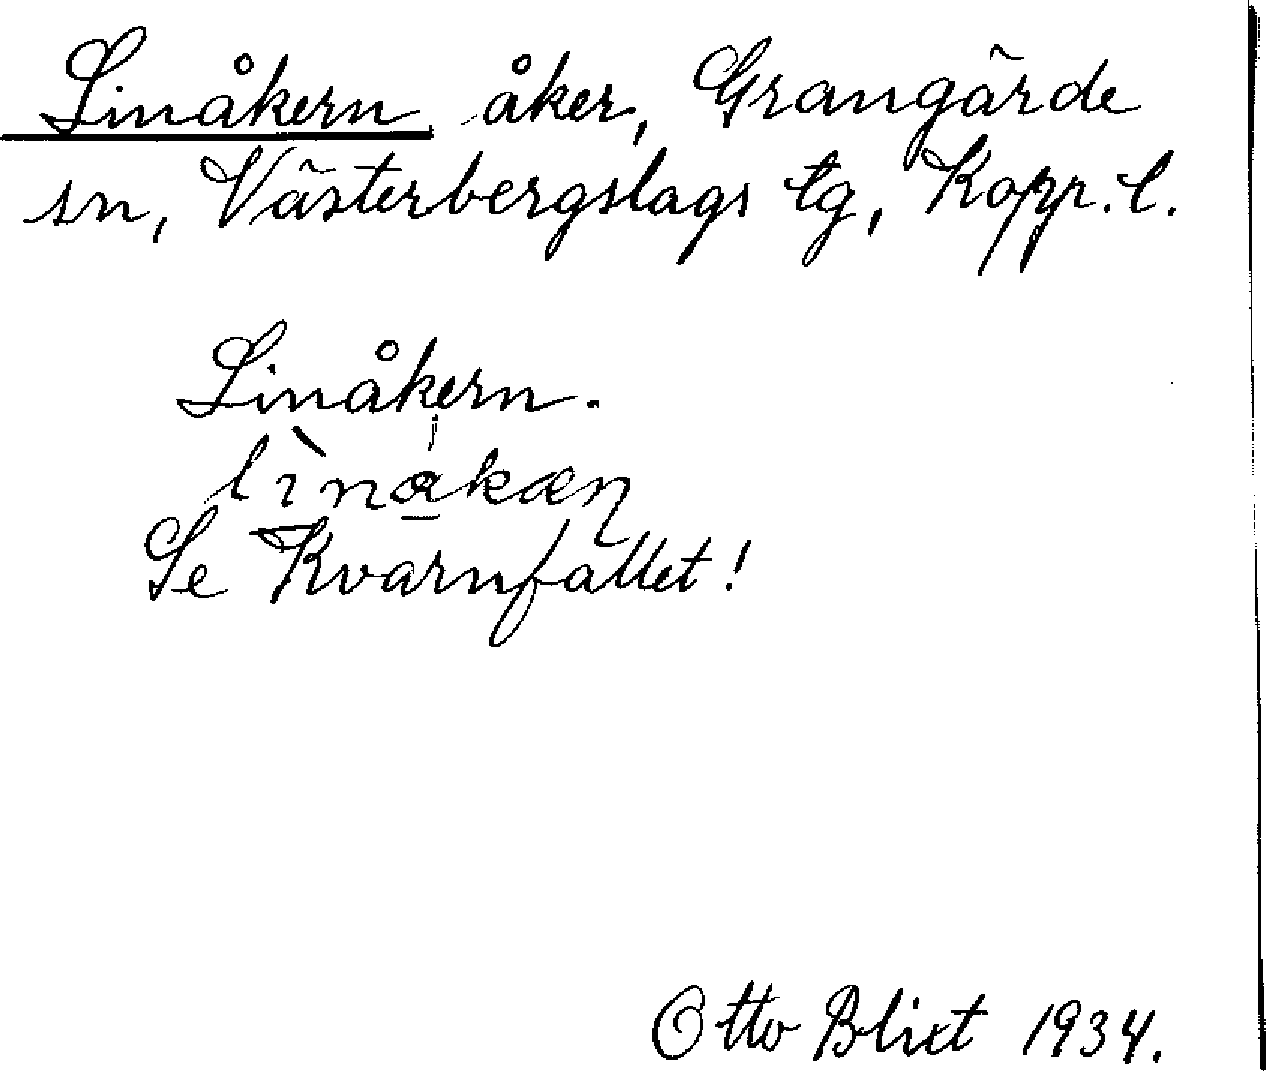 Linåkern åker, Grangärde
sn, Västerbergslags tg, Kopp. l.
Linåkern.
Se Kvarnfallet!
Otto Blixt 1934.